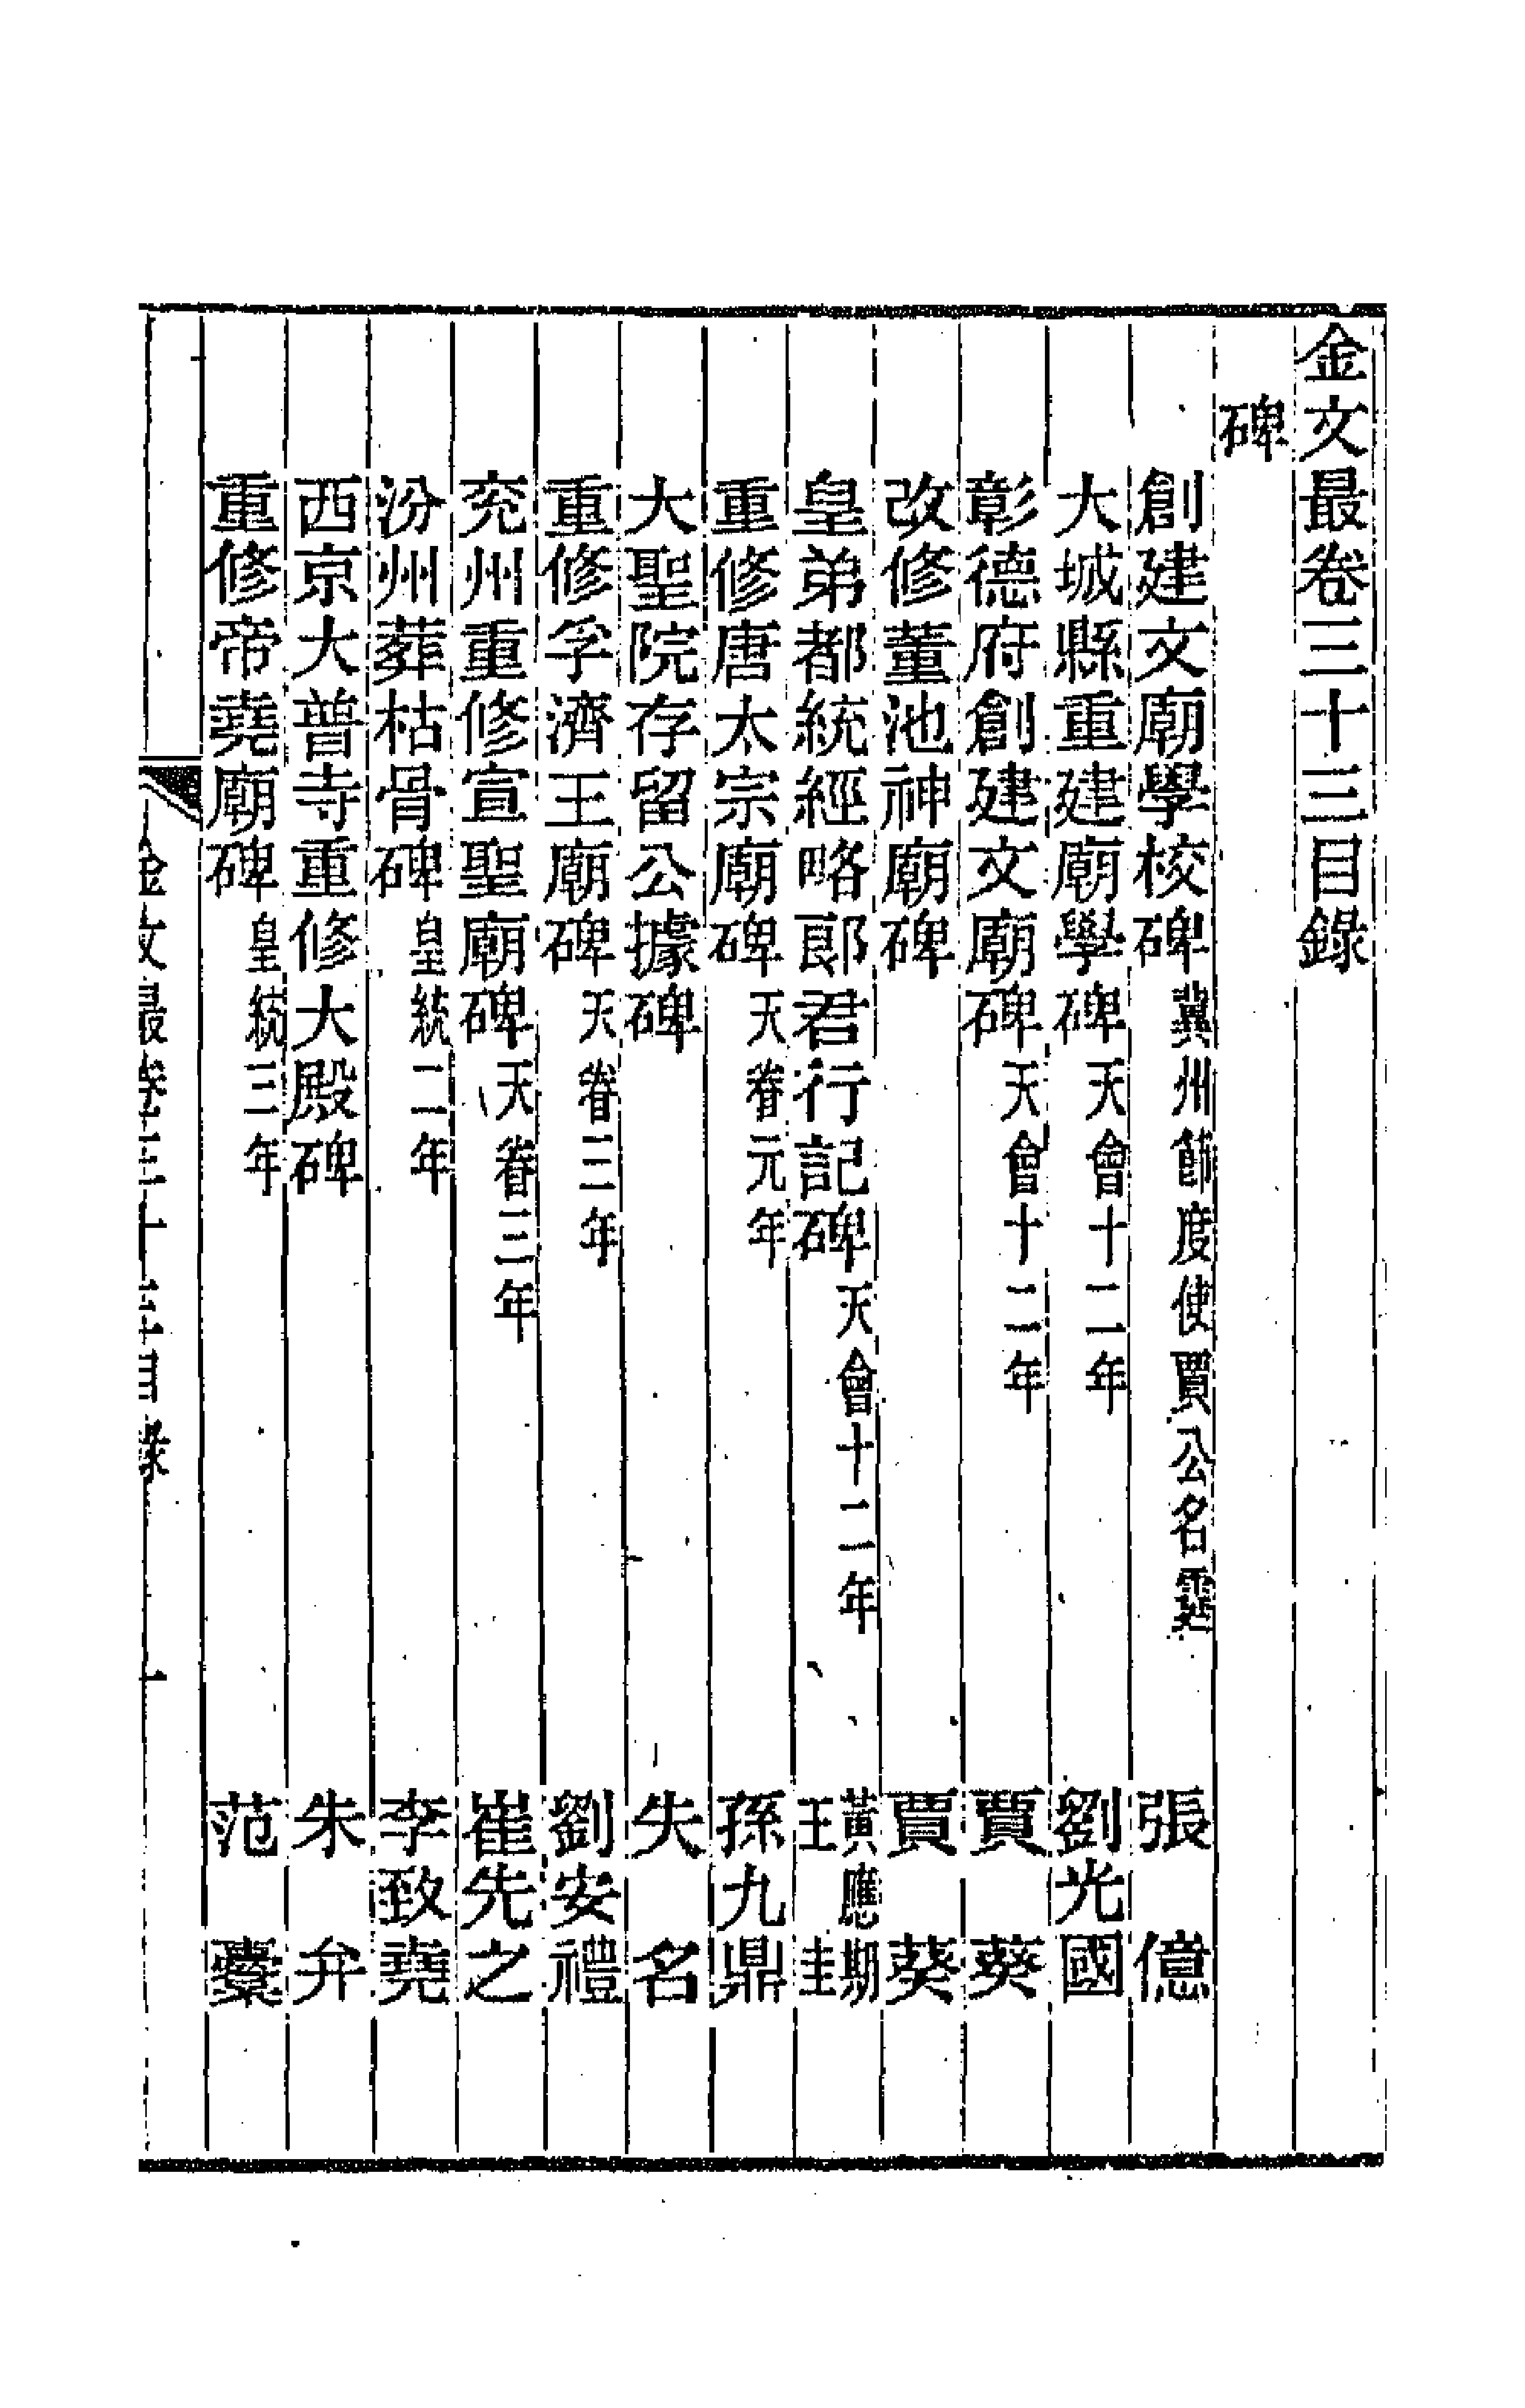 金文最卷三十三目錄
碑
創建文廟學校碑 冀州節度使賈公名霆 張億
大城縣重建廟學碑 天會十二年 劉光國
彰德府創建文廟碑 天會十二年 賈葵
改修董池神廟碑 賈葵
皇弟都統經略郎君行記碑 天會十二年 黃應期 王圭
重修唐太宗廟碑 天眷元年 孫九鼎
大聖院存留公據碑 失名
重修孚濟王廟碑 天眷三年 劉安禮
兖州重修宣聖廟碑 天眷三年 崔先之
汾州葬枯骨碑 皇統二年 李致堯
西京大普寺重修大殿碑 朱弁
重修帝堯廟碑 皇統三年 范橐
金文最卷三十三目錄 一